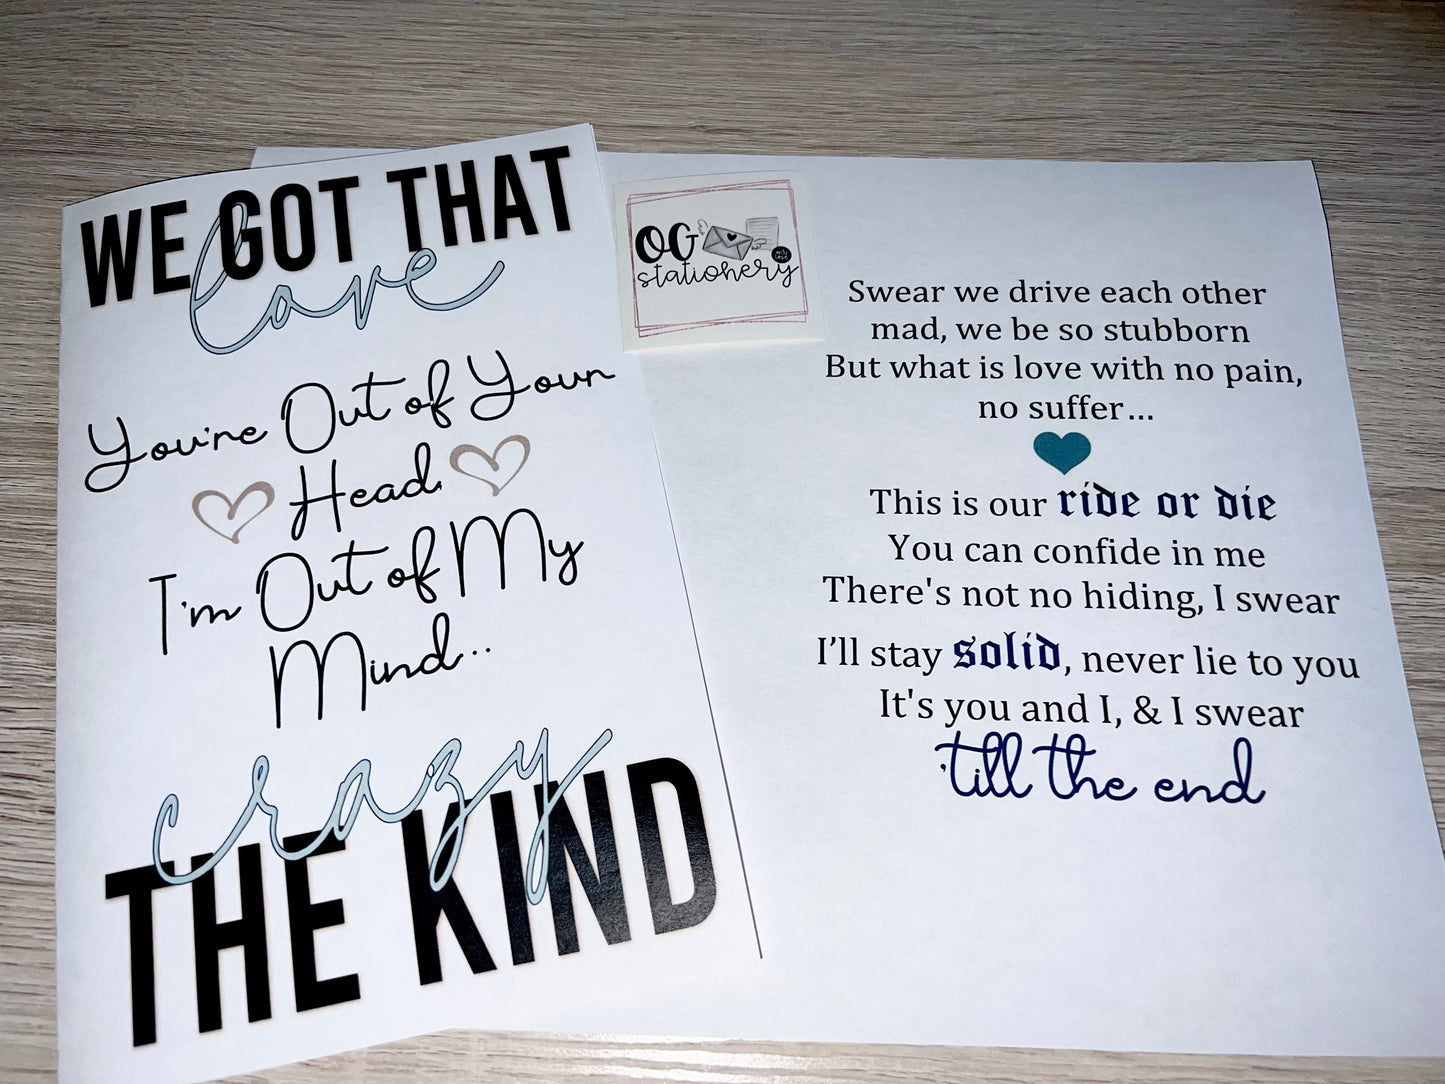 WE GOT THAT
love
You're Out of Your
Head,
I'm Out of My
Mind..
crazy
THE KIND
OG
stationery
Swear we drive each other
mad, we be so stubborn
But what is love with no pain,
no suffer...
This is our ride or die
You can confide in me
There's not no hiding, I swear
I'll stay solid, never lie to you
It's you and I, & I swear
'till the end